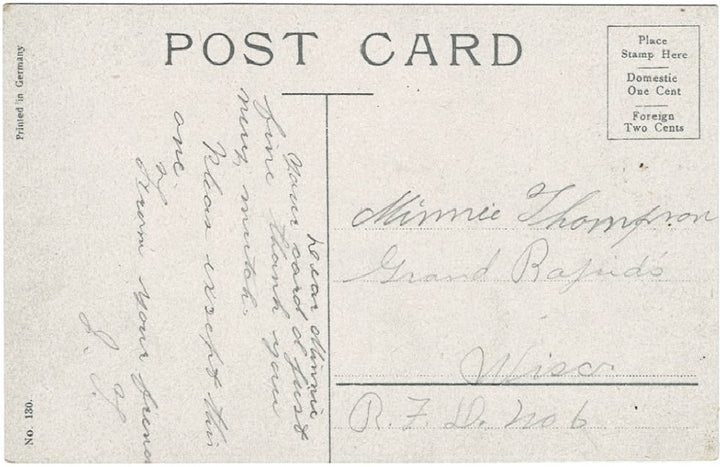 POST CARD
Place
Stamp Here
Domestic
One Cent
Foreign
Two Cents
Printed in Germany
No. 130.
Dear Minnie
Your card just
fine thank you
very mutch.
Pleas exsept this
one
From your friend
Minnie Thompson
Grand Rapids
Wisc
R. F. D. No 6